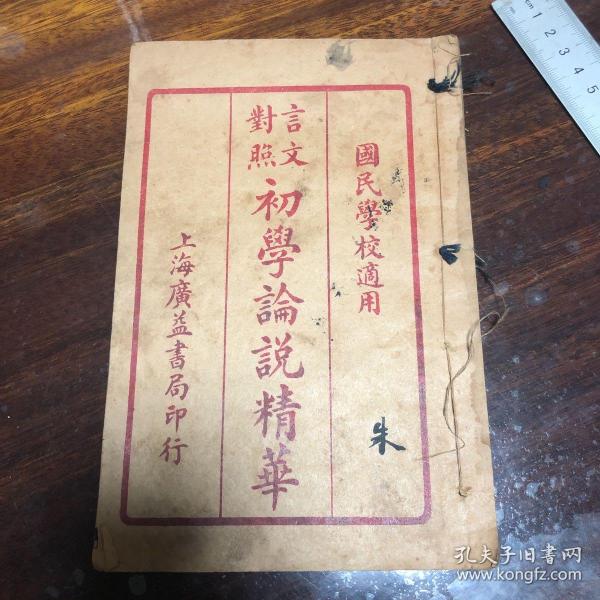 國民學校適用
言文對照
初學論説精華
上海廣益書局印行
朱
1 2 3 4 5
孔夫子旧書网
www.kongfz.com